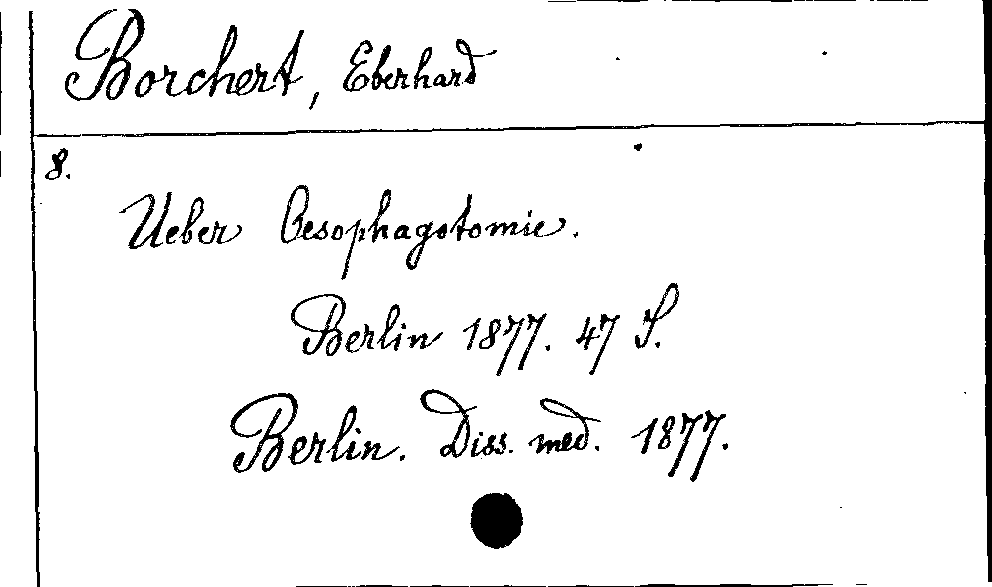 Borchert, Eberhard
8.
Ueber Oesophagotomie.
Berlin 1877. 47 S.
Berlin. Diss. med. 1877.